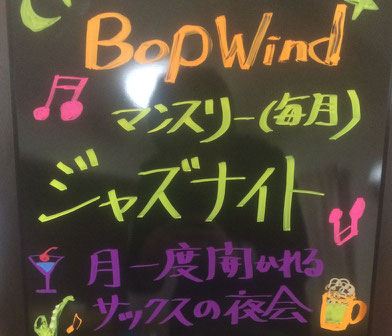 BopWind
マンスリー(毎月)
ジャズナイト
月一度開かれる
サックスの夜会